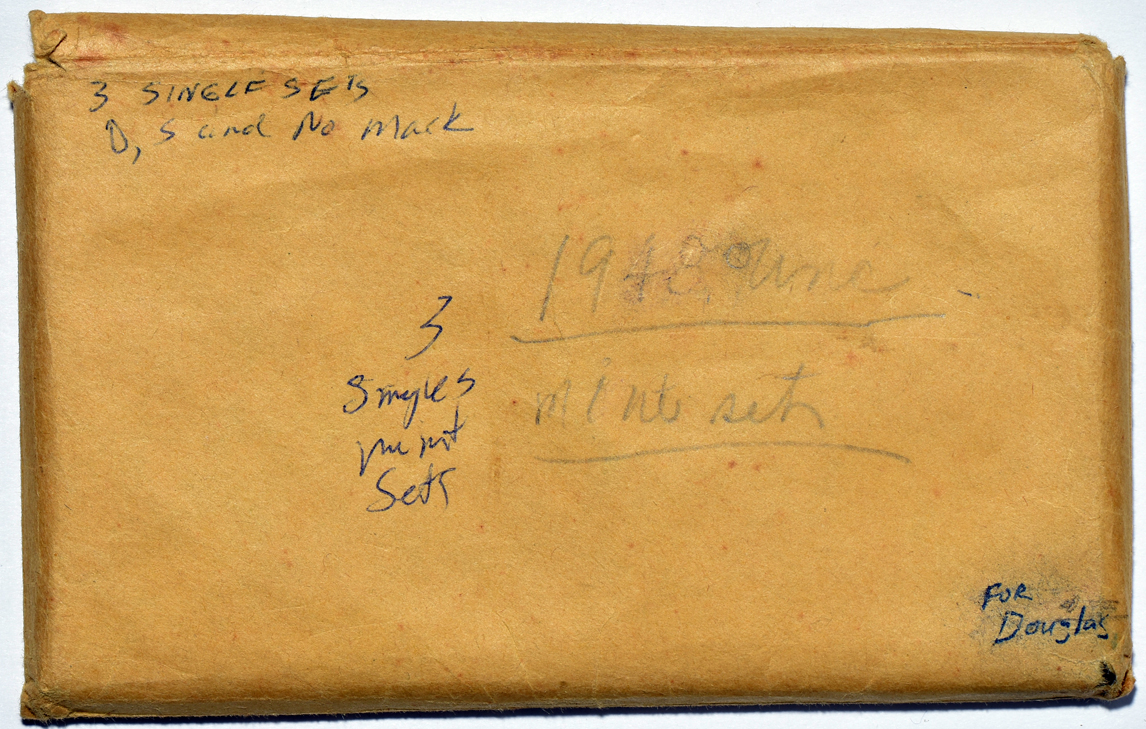 3 SINGLE SETS
D, S and No Mark
3
Singles
mint
Sets
mint set
FOR
Douglas